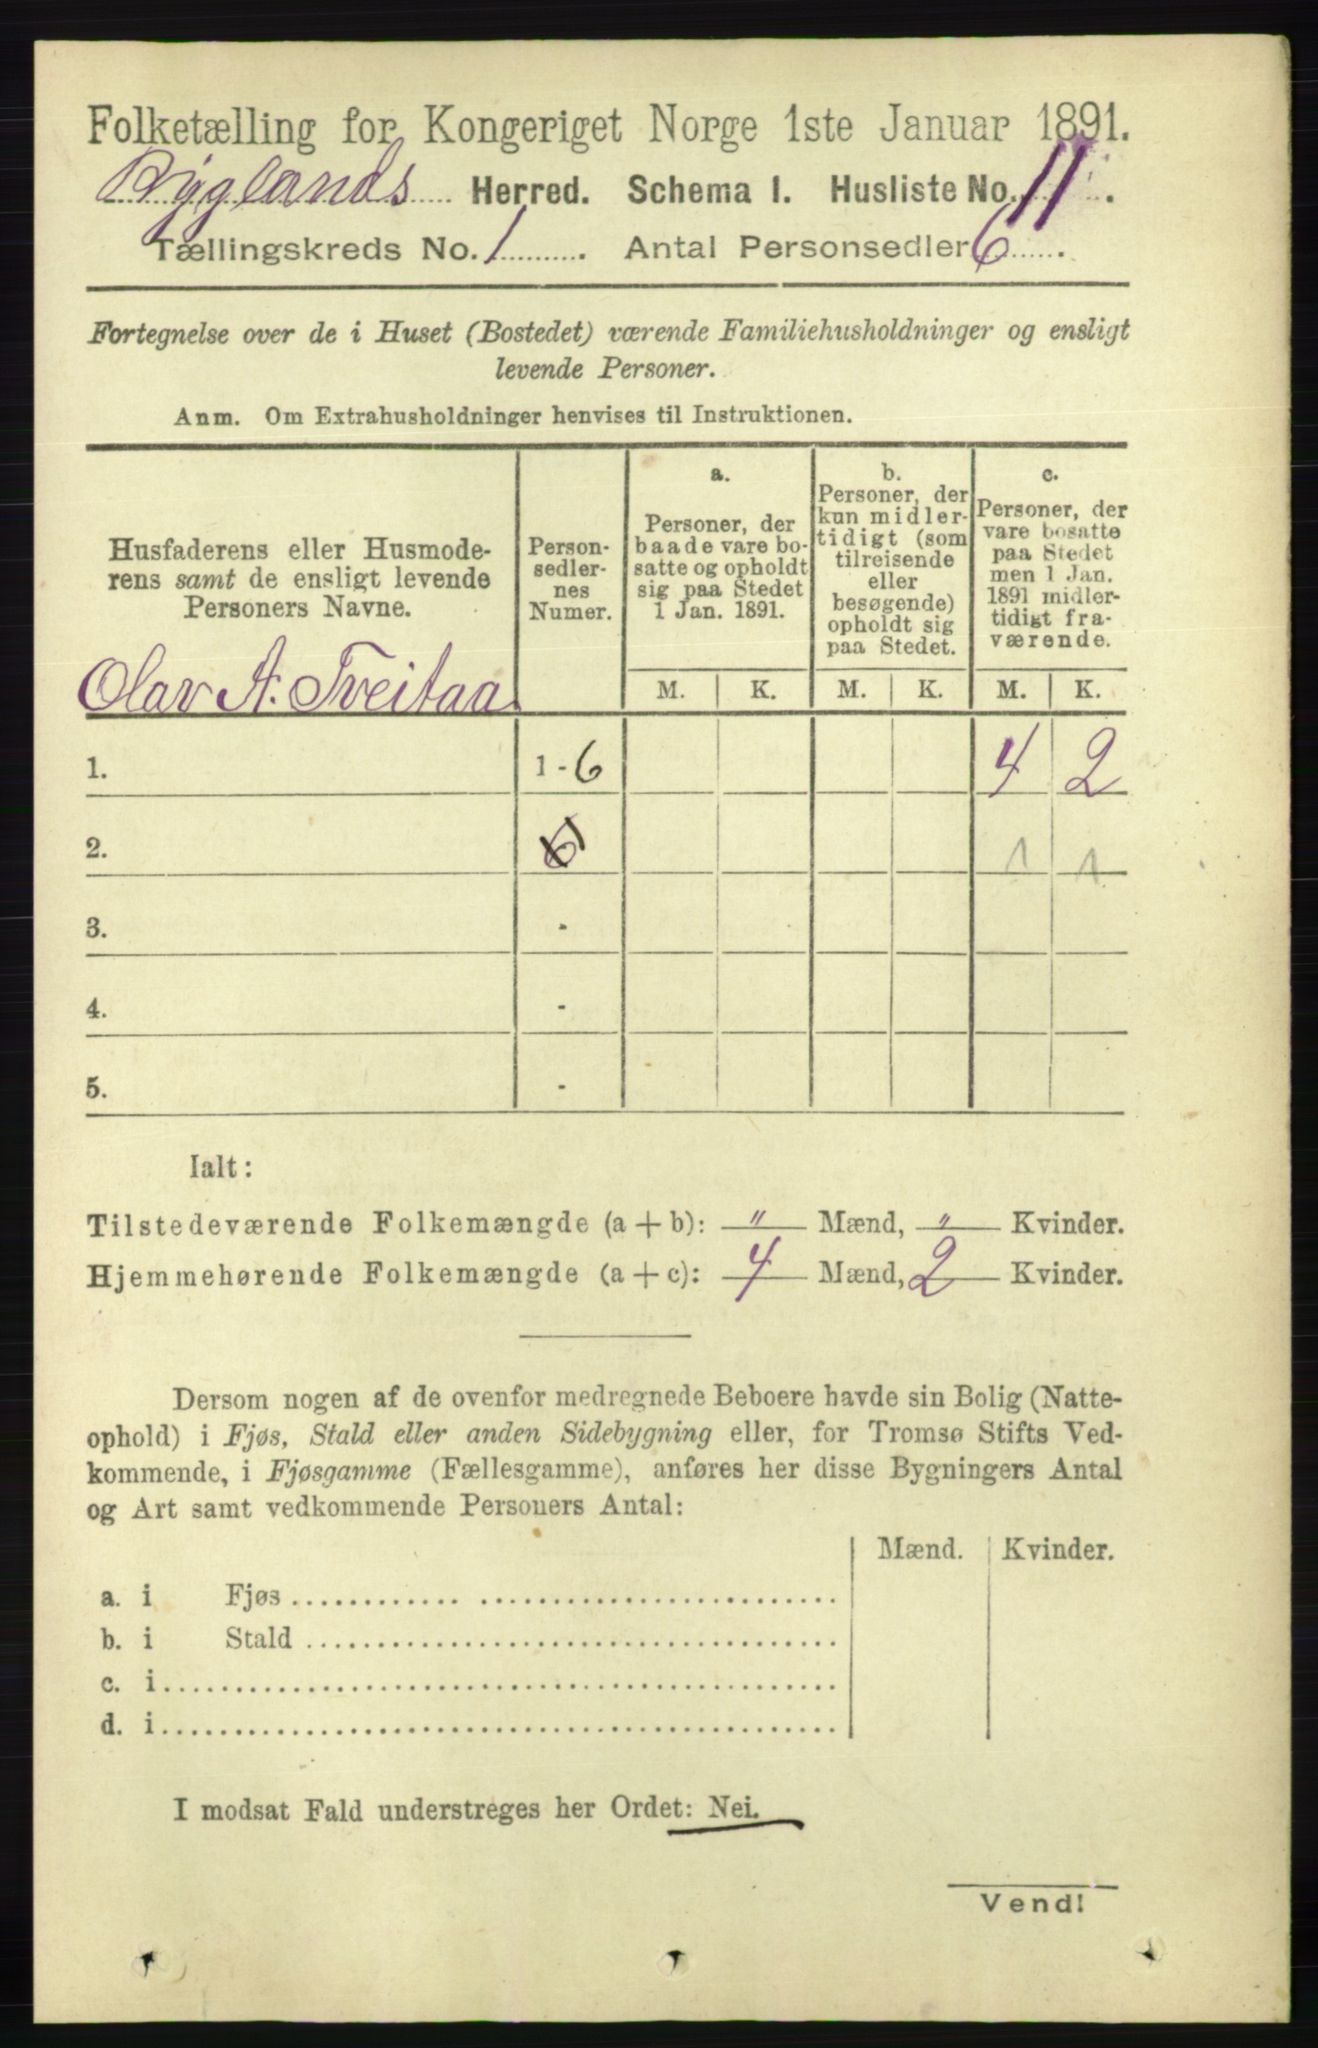 Folketælling for Kongeriget Norge 1ste Januar 1891.
Byglands Herred. Schema I. Husliste No. 11.
Tællingskreds No. 1. Antal Personsedler 6.
Fortegnelse over de i Huset (Bostedet) værende Familiehusholdninger og ensligt
levende Personer.
Anm. Om Extrahusholdninger henvises til Instruktionen.
Husfaderens eller Husmode-
rens samt de ensligt levende
Personers Navne.
Person-
sedler-
nes
Numer.
a.
Personer, der
baade vare bo-
satte og opholdt
sig paa Stedet
1 Jan. 1891.
b.
Personer, der
kun midler-
tidigt (som
tilreisende
eller
besøgende)
opholdt sig
paa Stedet.
c.
Personer, der
vare bosatte
paa Stedet
men 1 Jan.
1891 midler-
tidigt fra-
værende.
M. K. M. K. M. K.
Olav A. Tveitaa
1. 1-6 4 2
2. 6 1 1
3. -
4. -
5. -
Ialt:
Tilstedeværende Folkemængde (a+b): " Mænd, " Kvinder.
Hjemmehørende Folkemængde (a+c): 4 Mænd, 2 Kvinder.
Dersom nogen af de ovenfor medregnede Beboere havde sin Bolig (Natte-
ophold) i Fjøs, Stald eller anden Sidebygning eller, for Tromsø Stifts Ved-
kommende, i Fjøsgamme (Fællesgamme), anføres her disse Bygningers Antal
og Art samt vedkommende Personers Antal:
Mænd. Kvinder.
a. i Fjøs
b. i Stald
c. i
d. i
I modsat Fald understreges her Ordet: Nei.
Vend!